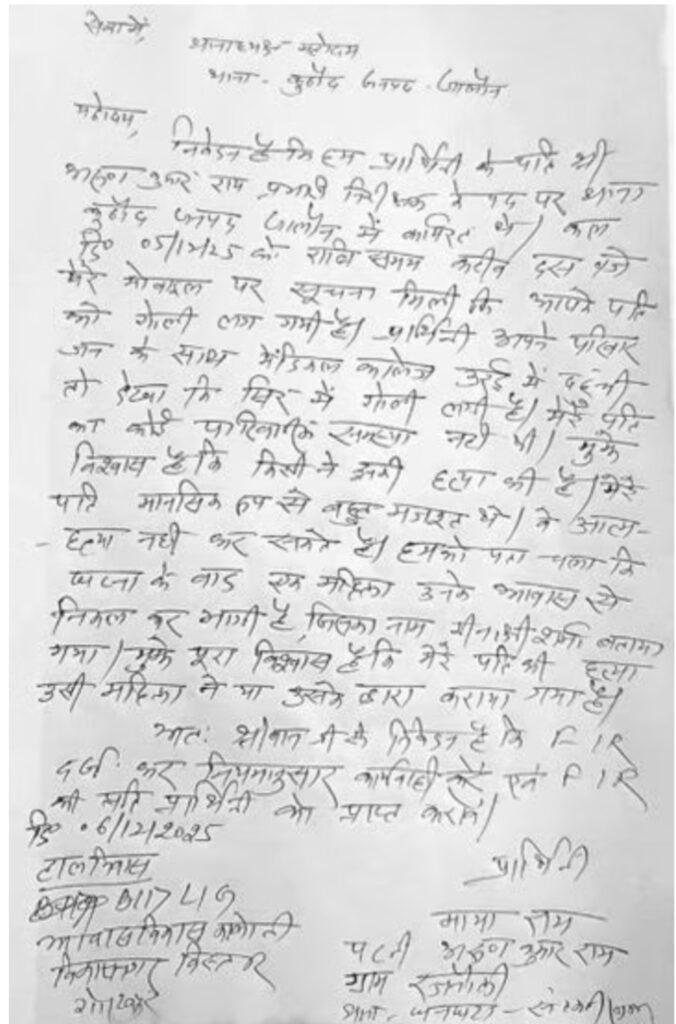 सेवा में,
थानाध्यक्ष महोदय
थाना - कुठौंद जनपद - जालौन
महोदय,
निवेदन है कि हम प्रार्थिनी के पति श्री
अरुण कुमार राय प्रभारी निरीक्षक के पद पर थाना
कुठौंद जनपद जालौन में कार्यरत थे। कल
दि० 05/12/25 को रात्रि समय करीब दस बजे
मेरे मोबाइल पर सूचना मिली कि आपके पति
को गोली लग गयी है। प्रार्थिनी अपने परिवार
जन के साथ मेडिकल कालेज उरई में पहुंची
तो देखा कि सिर में गोली लगी है। मेरे पति
का कोई पारिवारिक समस्या नहीं थी। मुझे
विश्वास है कि किसी ने इनकी हत्या की है। मेरे
पति मानसिक रुप से बहुत मजबूत थे। वे आत्म-
- हत्या नहीं कर सकते है। हमको पता चला कि
घटना के बाद एक महिला उनके आवास से
निकल कर भागी है, जिसका नाम मीनाक्षी शर्मा बताया
गया। मुझे पूरा विश्वास है कि मेरे पति की हत्या
उसी महिला ने या उसके द्वारा कराया गया है।
अतः श्रीमान जी से निवेदन है कि FIR
दर्ज कर नियमानुसार कार्यवाही करें एवं FIR
की प्रति प्रार्थिनी को प्राप्त करायें।
दि० 06/12/2025
हाल निवास
प्रार्थिनी
B117 LIG
माया राय
आवास विकास कालोनी
पत्नी अरुण कुमार राय
विस्तार
ग्राम रजनौली
गोरखपुर
थाना - धनघटा - संतकबीरनगर